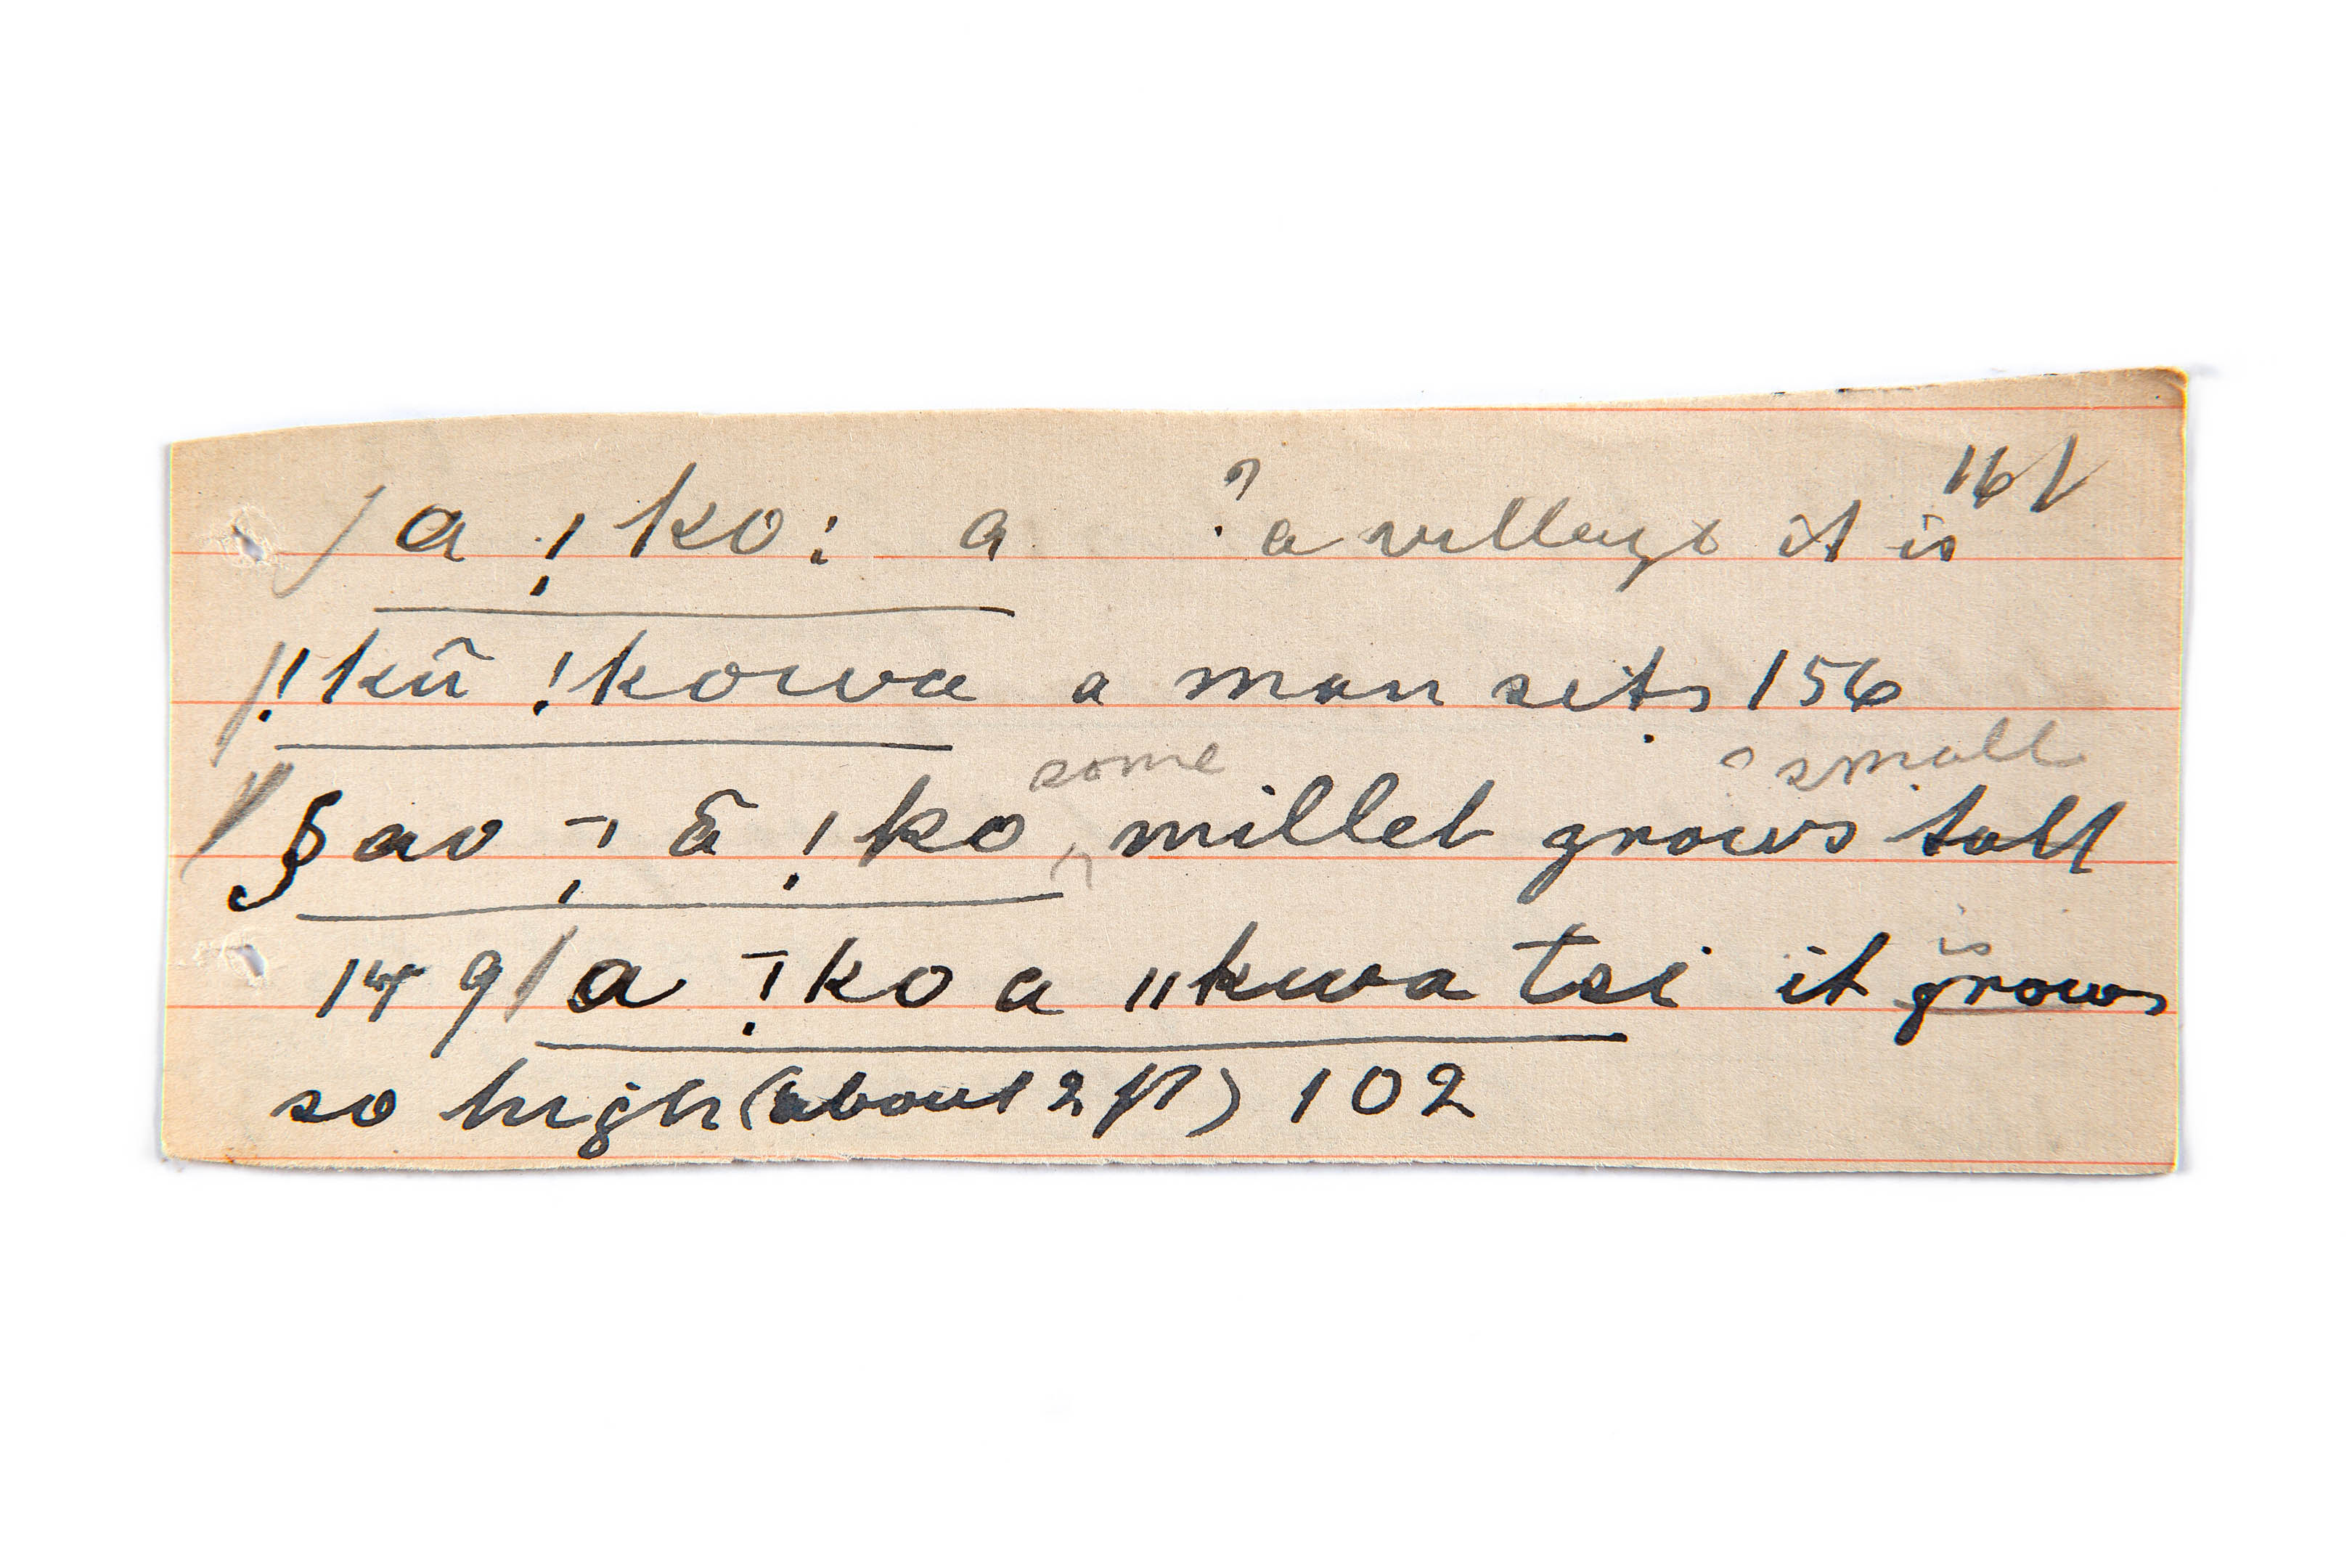 / a ! ko: a ? a village it is 161
/ !kũ !kowa a man sits 156
some small
// § av -! ã !ko ^ millet grows tall
is
149 / a -!ko a ǁkwa tsi it grows
so high (about 2 ft) 102